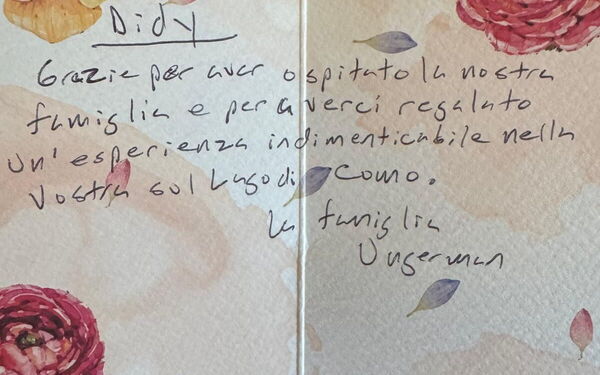 Didy
Grazie per aver ospitato la nostra
famiglia e per averci regalato
un'esperienza indimenticabile nella
Vostra sul Lago di Como.
La famiglia
Ungerman